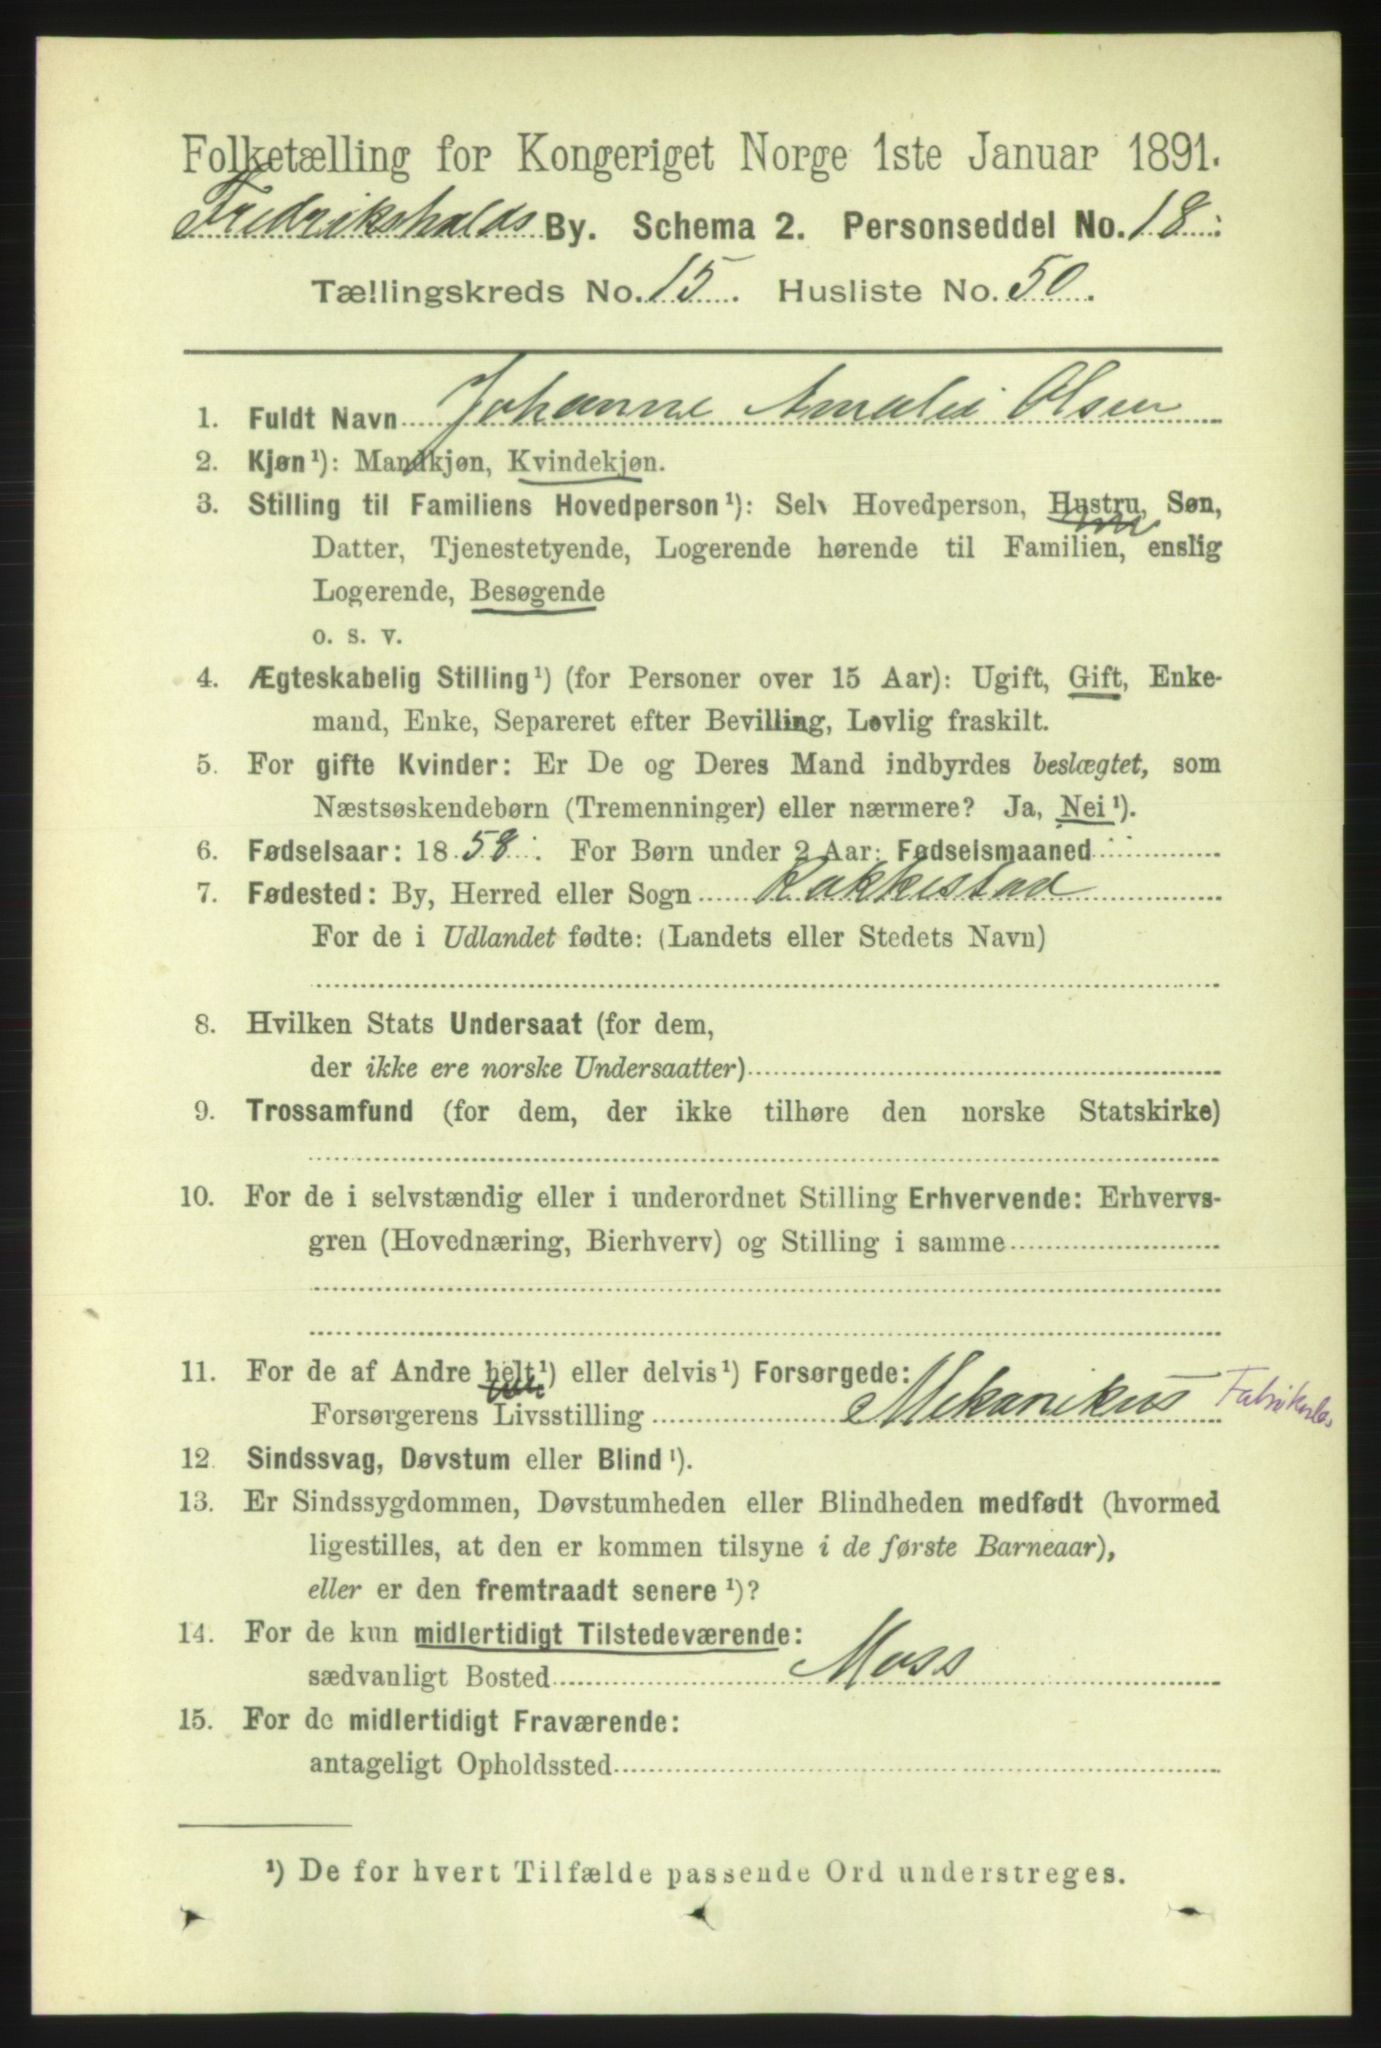 Folketælling for Kongeriget Norge 1ste Januar 1891.
Fredrikshalds By. Schema 2. Personseddel No. 18.
Tællingskreds No. 15. Husliste No. 50.
1. Fuldt Navn Johanne Amalie Olsen
2. Kjøn¹): Mandkjøn, Kvindekjøn.
3. Stilling til Familiens Hovedperson¹): Selv Hovedperson, Hustru, Søn,
Datter, Tjenestetyende, Logerende hørende til Familien, enslig
Logerende, Besøgende
o. s. v.
4. Ægteskabelig Stilling¹) (for Personer over 15 Aar): Ugift, Gift, Enke-
mand, Enke, Separeret efter Bevilling, Lovlig fraskilt.
5. For gifte Kvinder: Er De og Deres Mand indbyrdes beslægtet, som
Næstsøskendebørn (Tremenninger) eller nærmere? Ja, Nei¹).
6. Fødselsaar: 1858. For Børn under 2 Aar: Fødselsmaaned
7. Fødested: By, Herred eller Sogn Rakkestad
For de i Udlandet fødte: (Landets eller Stedets Navn)
8. Hvilken Stats Undersaat (for dem,
der ikke ere norske Undersaatter)
9. Trossamfund (for dem, der ikke tilhøre den norske Statskirke)
10. For de i selvstændig eller i underordnet Stilling Erhvervende: Erhvervs-
gren (Hovednæring, Bierhverv) og Stilling i samme
11. For de af Andre helt¹) eller delvis¹) Forsørgede:
Forsørgerens Livsstilling Mekanikus
12. Sindssvag, Døvstum eller Blind¹).
13. Er Sindssygdommen, Døvstumheden eller Blindheden medfødt (hvormed
ligestilles, at den er kommen tilsyne i de første Barneaar),
eller er den fremtraadt senere¹)?
14. For de kun midlertidigt Tilstedeværende:
sædvanligt Bosted Moss
15. For de midlertidigt Fraværende:
antageligt Opholdssted
¹) De for hvert Tilfælde passende Ord understreges.